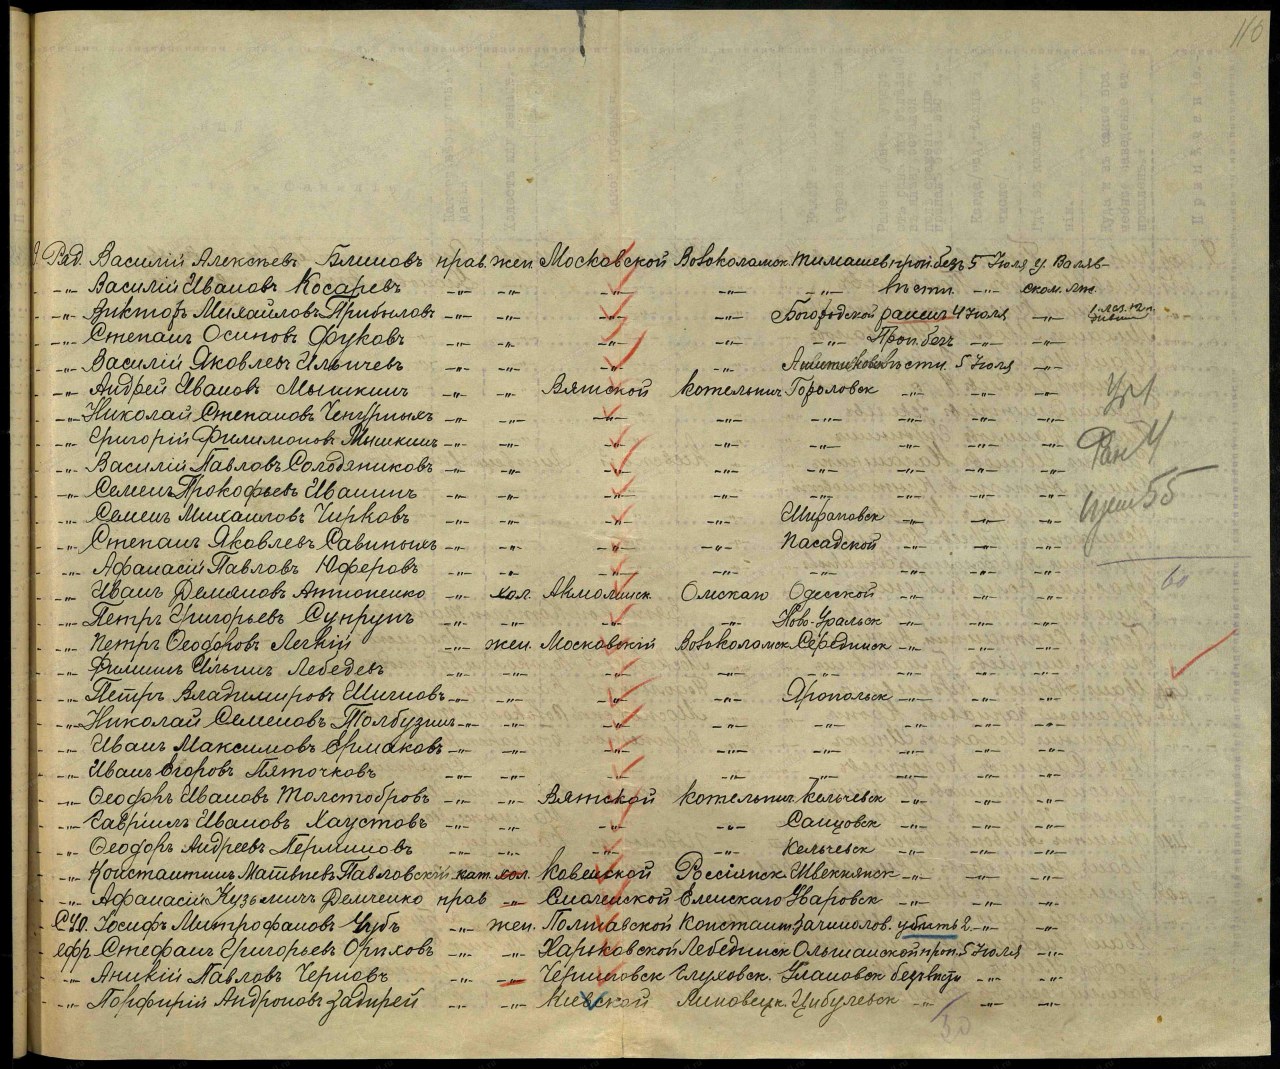 110
Ряд. Василій Алексѣевъ Блиновъ прав. жен. Московской Волоколамск. Тимашев. проп. безъ 5 Іюля у. Валяв-
-"- Василій Ивановъ Косаревъ -"- -"- -"- -"- -"- вѣсти. -"- ском. лж.
-"- Викторъ Михайловъ Прибыловъ -"- -"- -"- Богородской ранен 4 Іюля -"-
-"- Степанъ Осиповъ Фуковъ -"- -"- -"- -"- Проп. безъ -"- -"-
-"- Василій Яковлевъ Ильичевъ -"- -"- -"- -"- вѣсти. 5 Іюля -"-
-"- Андрей Ивановъ Мышкинъ -"- -"- Вятской Котельнич. -"- -"- -"-
-"- Николай Степановъ -"- -"- -"- -"- -"- -"- -"- -"-
-"- Григорій Филимоновъ Мышкинъ -"- -"- -"- -"- -"- -"- -"- -"-
-"- Василій Павловъ Солодяниковъ -"- -"- -"- -"- -"- -"- -"- -"-
-"- Семенъ Прокофьевъ Ивашинъ -"- -"- -"- -"- -"- -"- -"- -"-
-"- Семенъ Михаиловъ Чирковъ -"- -"- -"- -"- -"- -"- -"-
-"- Степанъ Яковлевъ Савиныхъ -"- -"- -"- -"- Пасадской -"- -"- -"-
-"- Афанасій Павловъ Юферовъ -"- -"- -"- -"- -"- -"- -"- -"-
-"- Иванъ Демяновъ Антоненко -"- хол. Акмолинск. Омскаго Одесской -"- -"- -"-
-"- Петръ Григорьевъ Супрунъ -"- -"- -"- -"- Ново-Уральск -"- -"- -"-
-"- Петръ Ѳеодоровъ Легкій -"- жен. Московскій Волоколамск. Серединск -"- -"- -"-
-"- Филипъ Ильинъ Лебедевъ -"- -"- -"- -"- -"- -"- -"- -"-
-"- Петръ Владимировъ -"- -"- -"- -"- Яропольск -"- -"- -"-
-"- Николай Семеновъ Толбузинъ -"- -"- -"- -"- -"- -"- -"- -"-
-"- Иванъ Максимовъ Ермаковъ -"- -"- -"- -"- -"- -"- -"- -"-
-"- Иванъ Егоровъ Пяточковъ -"- -"- -"- -"- -"- -"- -"- -"-
-"- Ѳеодоръ Ивановъ Толстобровъ -"- -"- Вятской Котельнич. Кельчевск -"- -"- -"-
-"- Гавріилъ Ивановъ Хаустовъ -"- -"- -"- -"- -"- -"- -"-
-"- Ѳеодоръ Андреевъ Перминовъ -"- -"- -"- -"- Кельчевск -"- -"- -"-
-"- Константинъ Матвѣевъ Павловскій кат. хол. Ковенской Россіенск. -"- -"- -"-
-"- Афанасій Кузьмичъ Демченко прав -"- Смоленской Ельнскаго Уваровск -"- -"- -"-
СУО. Іосифъ Митрофановъ Чубъ -"- жен. Полтавской Констант. убитъ 2 -"- -"-
ефр. Стефанъ Григорьевъ Ориховъ -"- -"- Харьковской Лебединск. Ольшанской проп. 5 Іюля -"-
-"- Аникій Павловъ Черновъ -"- -"- Черниговск Глуховск. Улановск безъвѣсти -"- -"-
-"- Порфирій Андроновъ Задирей -"- -"- Кіевской Липовецк. Цибулевск -"- -"- -"-
Уб 1
Ран 4
55
60
30